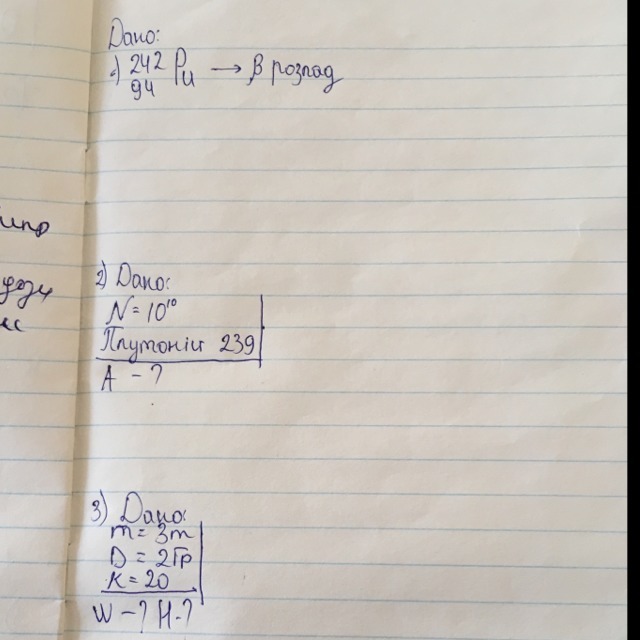 Дано:
1) 242 Pu → β розпад
94
2) Дано:
N = 10¹⁰
Плутоній 239
A - ?
3) Дано:
m = 3т
D = 2Гр
K = 20
W - ? H - ?